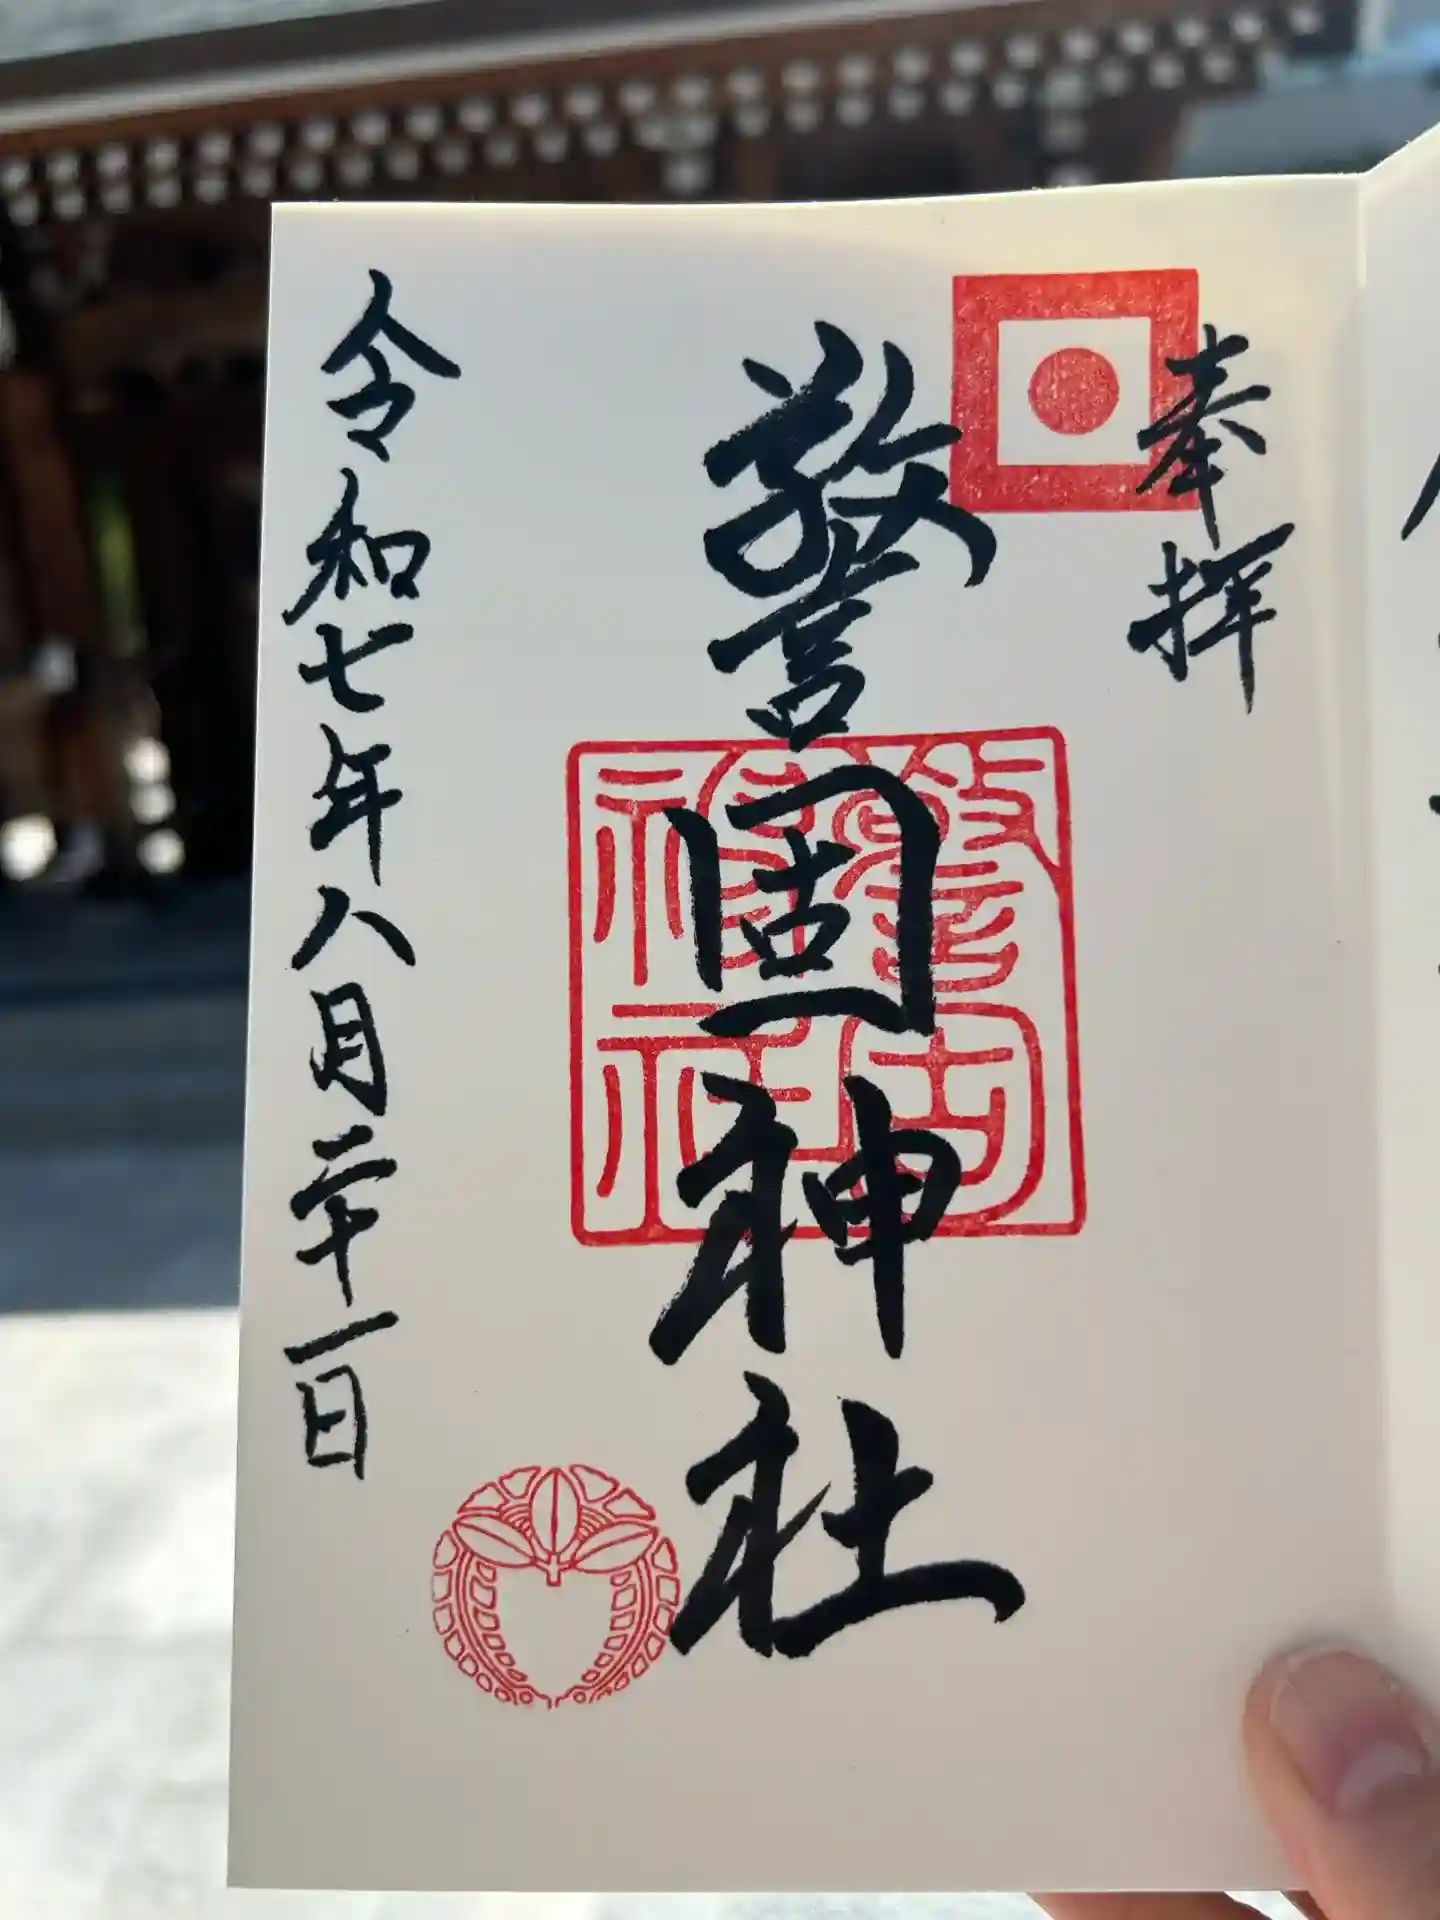 奉拝
警固神社
警固神社
令和七年八月二十一日